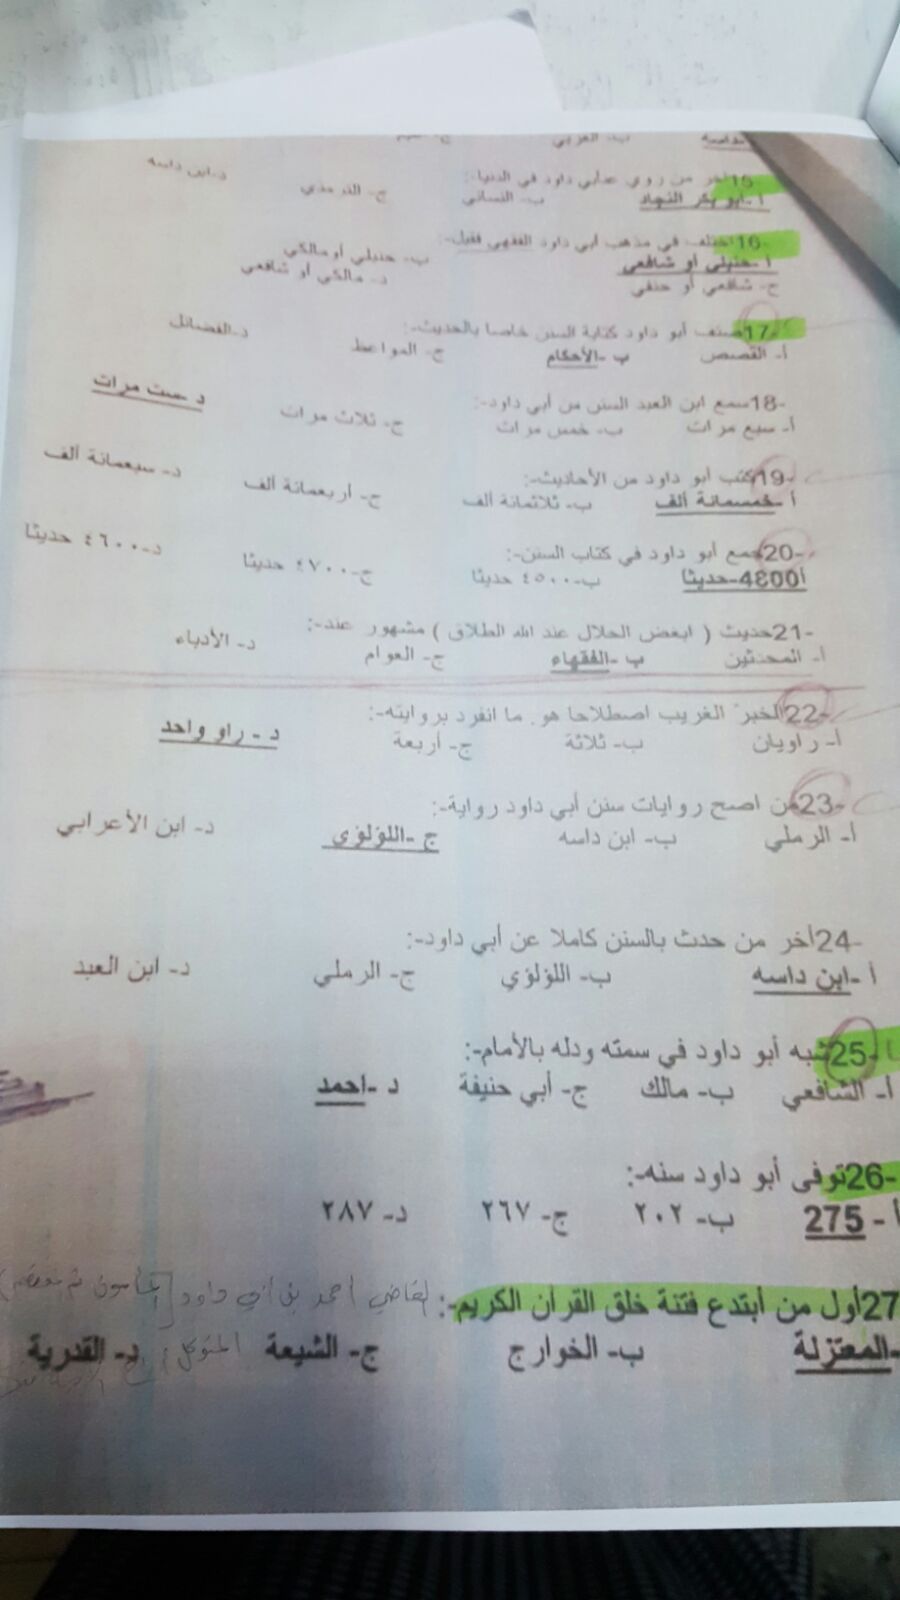 -15اخر من روى عن أبي داود في الدنيا-:
أ-أبو بكر النجاد ب- النسائي ج- الترمذي د-ابن داسه
-16اختلف في مذهب أبي داود الفقهي فقيل-:
أ-حنبلي أو شافعي ب- حنبلي أو مالكي
ج- شافعي أو حنفي د- مالكي أو شافعي
-17صنف أبو داود كتابة السنن خاصا بالحديث-:
أ- القصص ب -الأحكام ج- المواعظ د-الفضائل
-18سمع ابن العبد السنن من أبي داود-:
أ- سبع مرات ب- خمس مرات ج- ثلاث مرات د-ست مرات
-19كتب أبو داود من الأحاديث-:
أ -خمسمائة ألف ب- ثلاثمائة ألف ج- أربعمائة ألف د- سبعمائة ألف
-20جمع أبو داود في كتاب السنن-:
أ4800-حديثا ب-٤٥٠٠ حديثا ج-٤٧٠٠ حديثا د-٤٦٠٠ حديثا
-21حديث ( ابغض الحلال عند الله الطلاق ) مشهور عند-:
أ- المحدثين ب -الفقهاء ج- العوام د- الأدباء
-22الخبر الغريب اصطلاحا هو ما انفرد بروايته-:
أ- راويان ب- ثلاثة ج- أربعة د - راو واحد
-23من اصح روايات سنن أبي داود رواية-:
أ- الرملي ب- ابن داسه ج -اللؤلؤي د- ابن الأعرابي
-24آخر من حدث بالسنن كاملا عن أبي داود-:
أ -ابن داسه ب- اللؤلؤي ج- الرملي د- ابن العبد
-25شبه أبو داود في سمته ودله بالأمام-:
أ- الشافعي ب- مالك ج- أبي حنيفة د -احمد
-26توفى أبو داود سنه-:
أ - 275 ب- ٢٠٢ ج- ٢٦٧ د- ٢٨٧
27أول من أبتدع فتنة خلق القرآن الكريم-: القاضي احمد بن ابي داود
-المعتزلة ب- الخوارج ج- الشيعة المتوكل د- القدرية